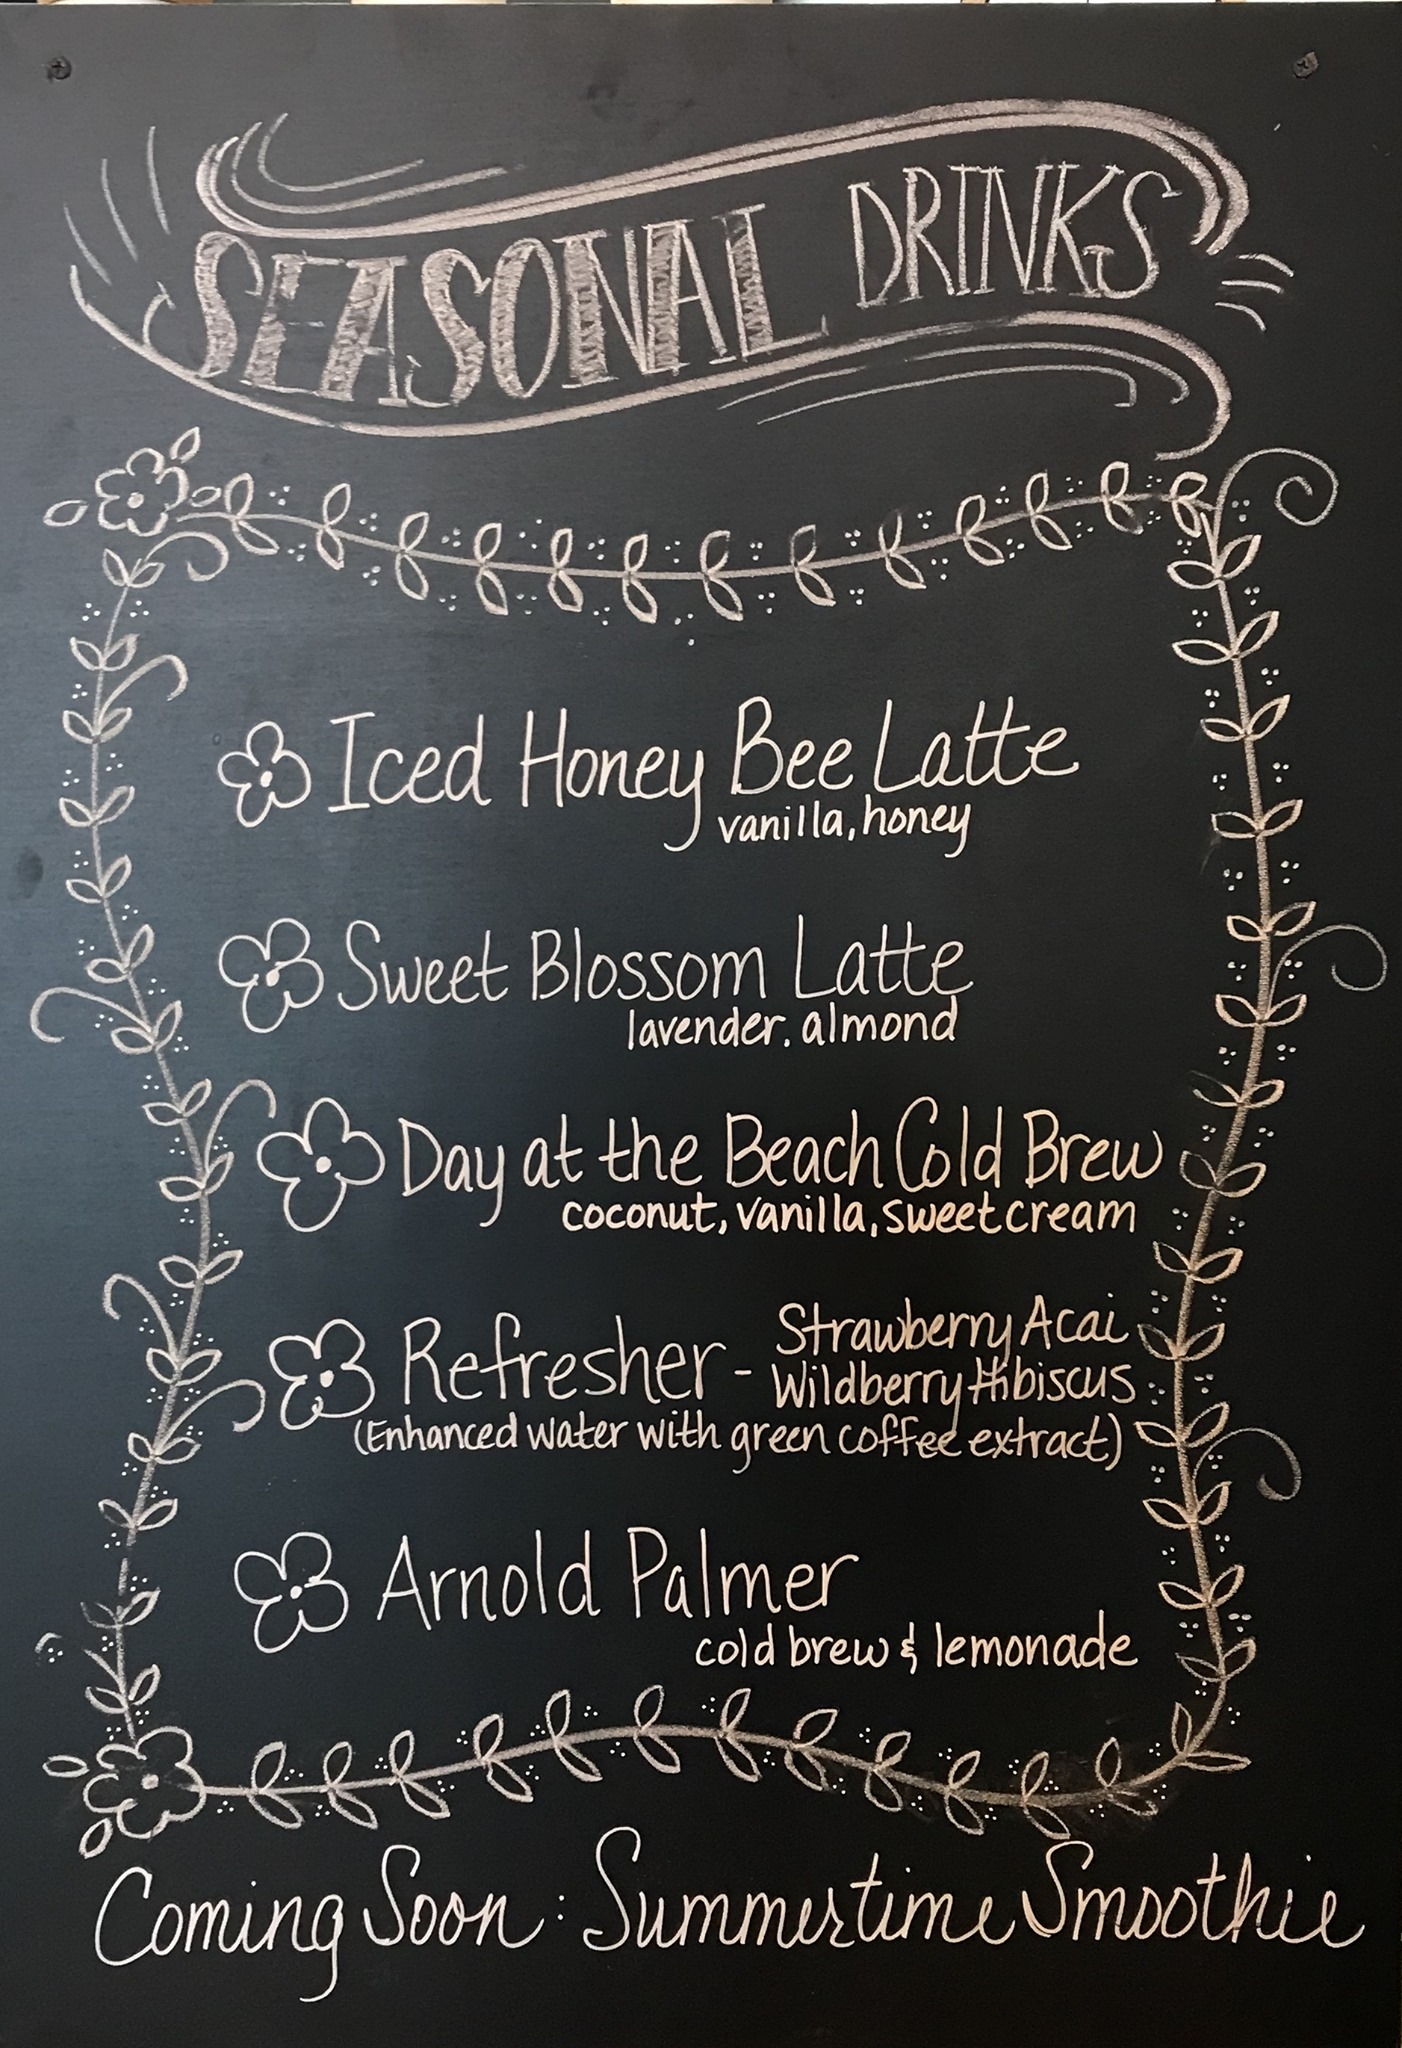 SEASONAL DRINKS
Iced Honey Bee Latte
vanilla, honey
Sweet Blossom Latte
lavender, almond
Day at the Beach Cold Brew
coconut, vanilla, sweet cream
Refresher - Strawberry Acai
Wildberry Hibiscus
(Enhanced water with green coffee extract)
Arnold Palmer
cold brew & lemonade
Coming Soon : Summertime Smoothie